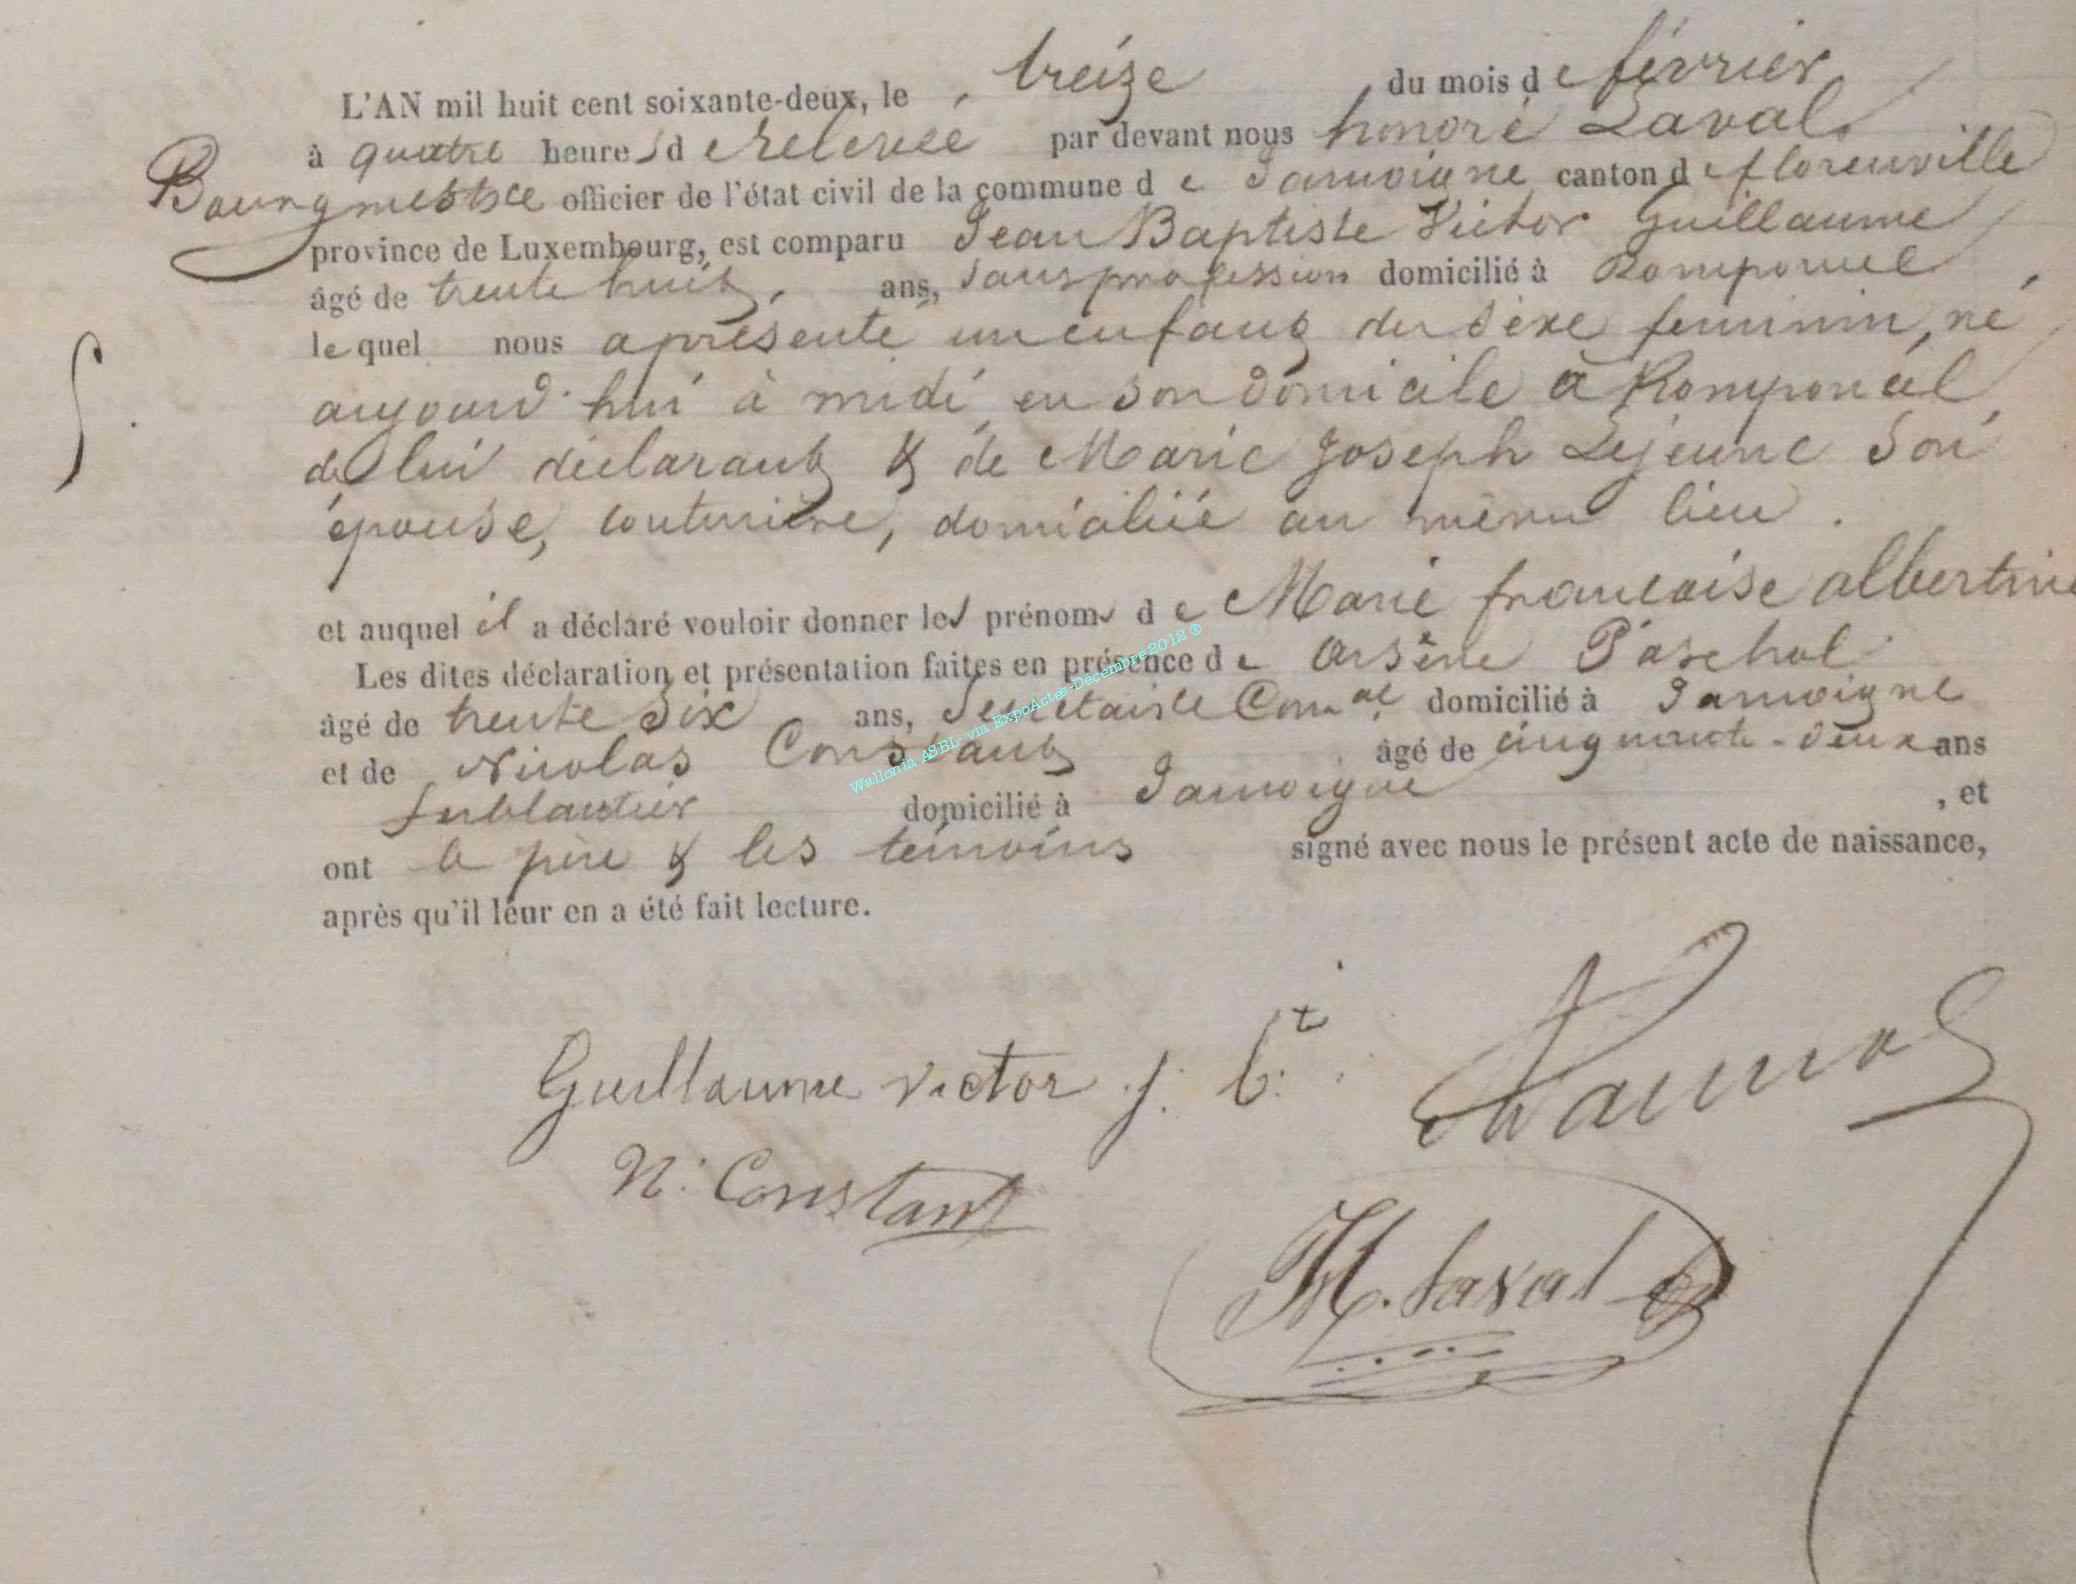 L'AN mil huit cent soixante-deux, le treize du mois de février
à quatre heures de relevée par devant nous honoré Laval
Bourgmestre officier de l'état civil de la commune de Jamoigne canton de florenville
province de Luxembourg, est comparu Jean Baptiste Victor Guillaume
âgé de trente huit ans, sans profession domicilié à Romponcel,
lequel nous a présenté un enfant du sexe feminin, né
aujourd'hui à midi en son domicile à Romponcel,
de lui déclarant & de Marie Joseph Lejeune son
épouse, couturière, domiciliée au même lieu.
et auquel il a déclaré vouloir donner les prénoms de Marie francoise albertine
Les dites déclaration et présentation faites en présence de arsène Paschal
âgé de trente six ans, Secrétaire Com.al domicilié à Jamoigne
et de Nicolas Constant âgé de cinquante-deux ans
ferblantier domicilié à Jamoigne, et
ont le père & les témoins signé avec nous le présent acte de naissance,
après qu'il leur en a été fait lecture.
Wallonia ASBL- via ExpoActes-Decembre2012 ®
Guillaume victor j. b.t
N. Constant
H. Laval